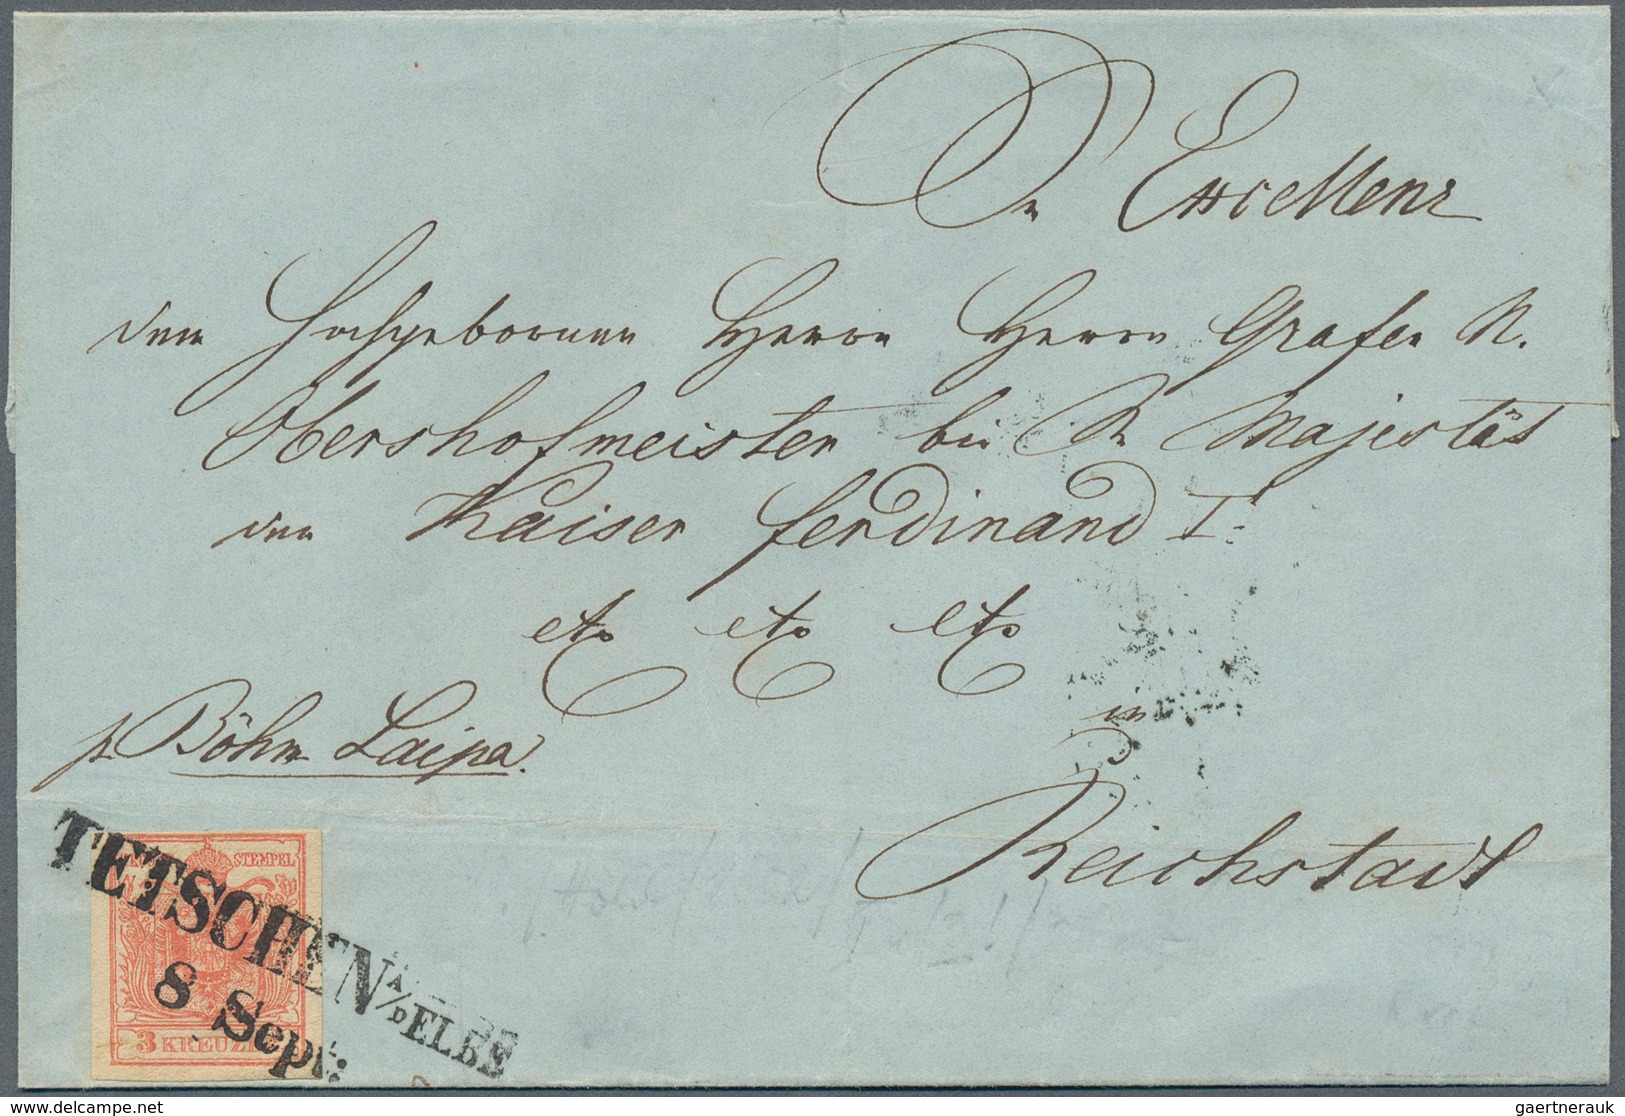 Sr Excellenz
dem Hochgebornen Herrn Herrn Grafen N.
Obersthofmeister bei Sr Majestät
den Kaiser Ferdinand I.
etc etc etc
in
pr Böhm Laipa.
Reichstadt
STEMPEL
TETSCHEN A/D ELBE
8 Sept:
3 KREUZER
delcampe.net
gaertnerauk